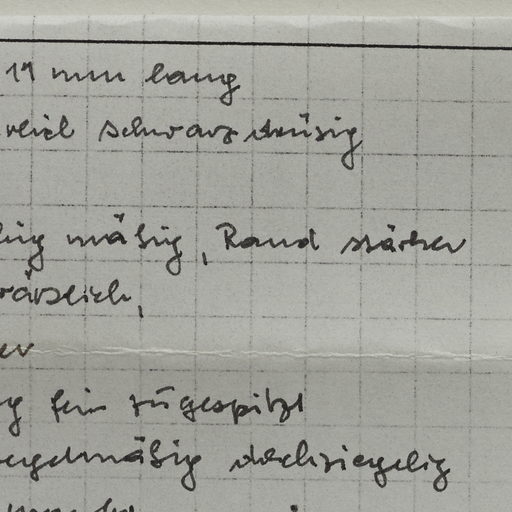 11 mm lang
reich schwarz drüsig
mäßig, Rand stärker
wärzlich,
er
fein zugespitzt
regelmäßig dachziegelig